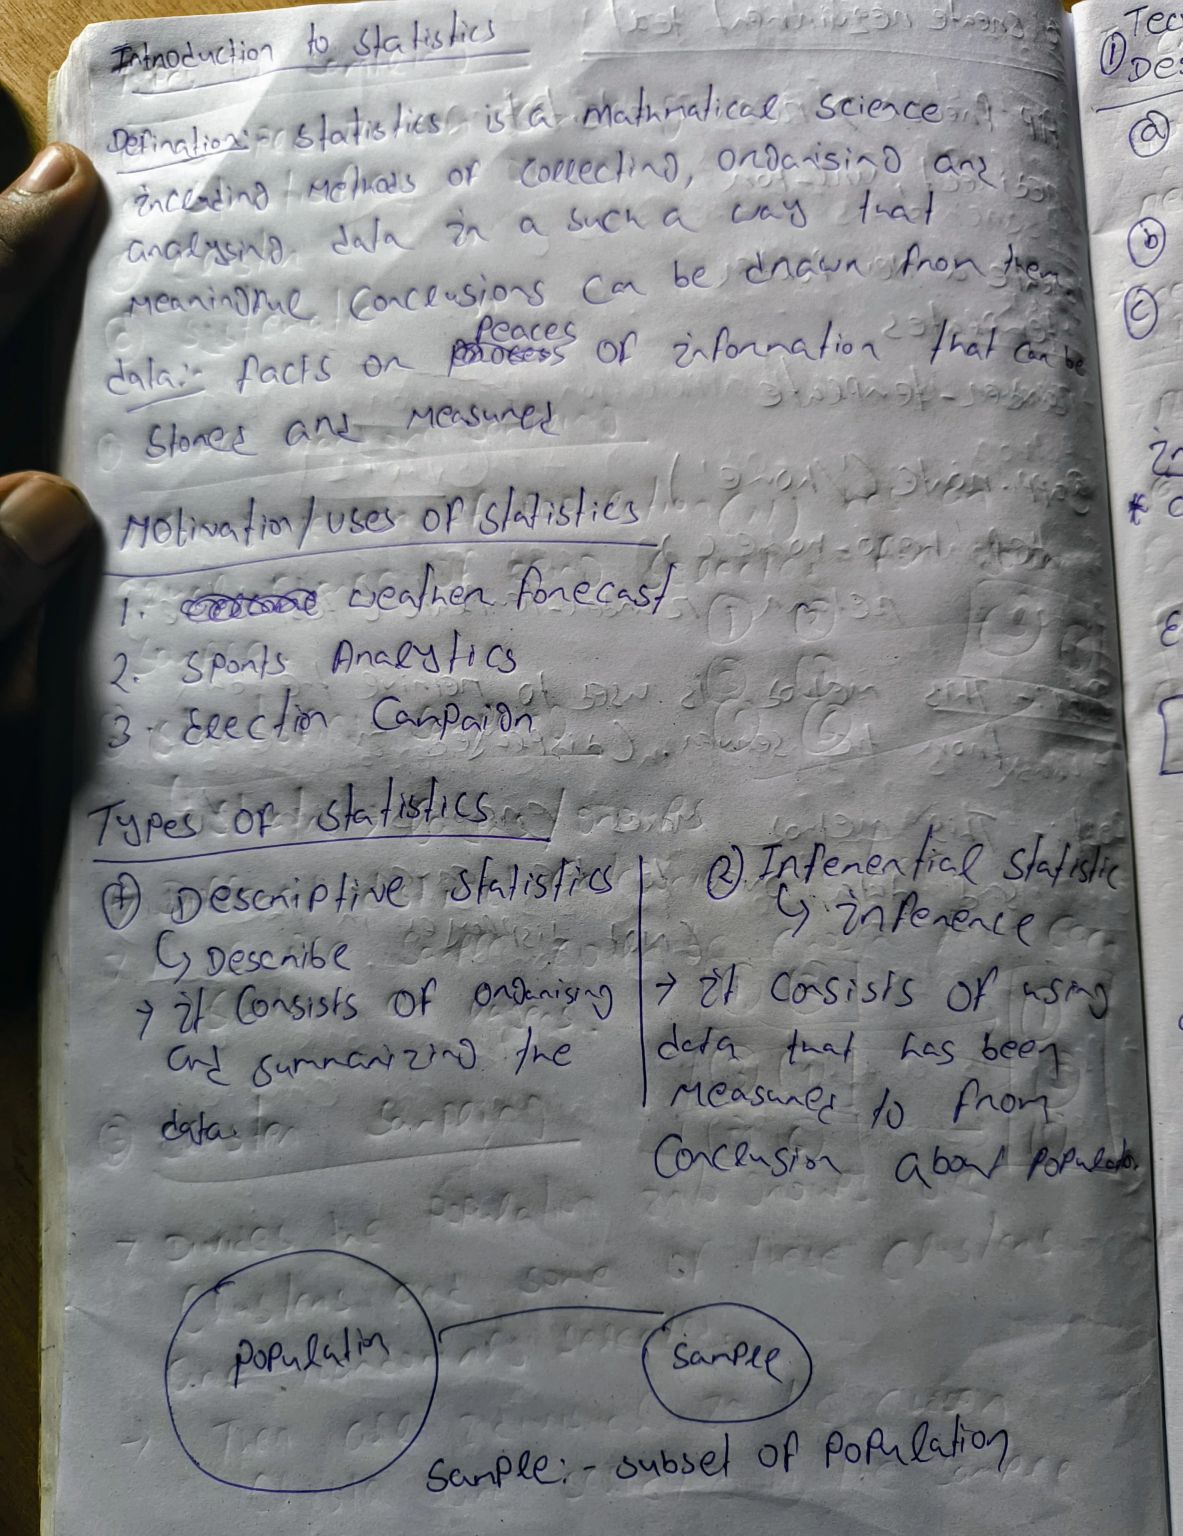 Introduction to statistics
Defination:- statistics is a Mathmatical science
including Methods of collecting, organising and
analysing data in a such a way that
meaningful conclusions can be drawn from them
data:- facts or peaces of information that can be
stored and measured
Motivation/uses of statistics
1. weather forecast
2. Sports Analytics
3. Election Campaign
Types of statistics
① Descriptive statistics
↳ Describe
→ it consists of organising
and summarizing the
data.
② Inferential statistic
↳ inference
→ it consists of using
data that has been
measured to from
conclusion about population
population
sample
sample:- subset of population
Tec
① Des
ⓐ
ⓑ
ⓒ
in